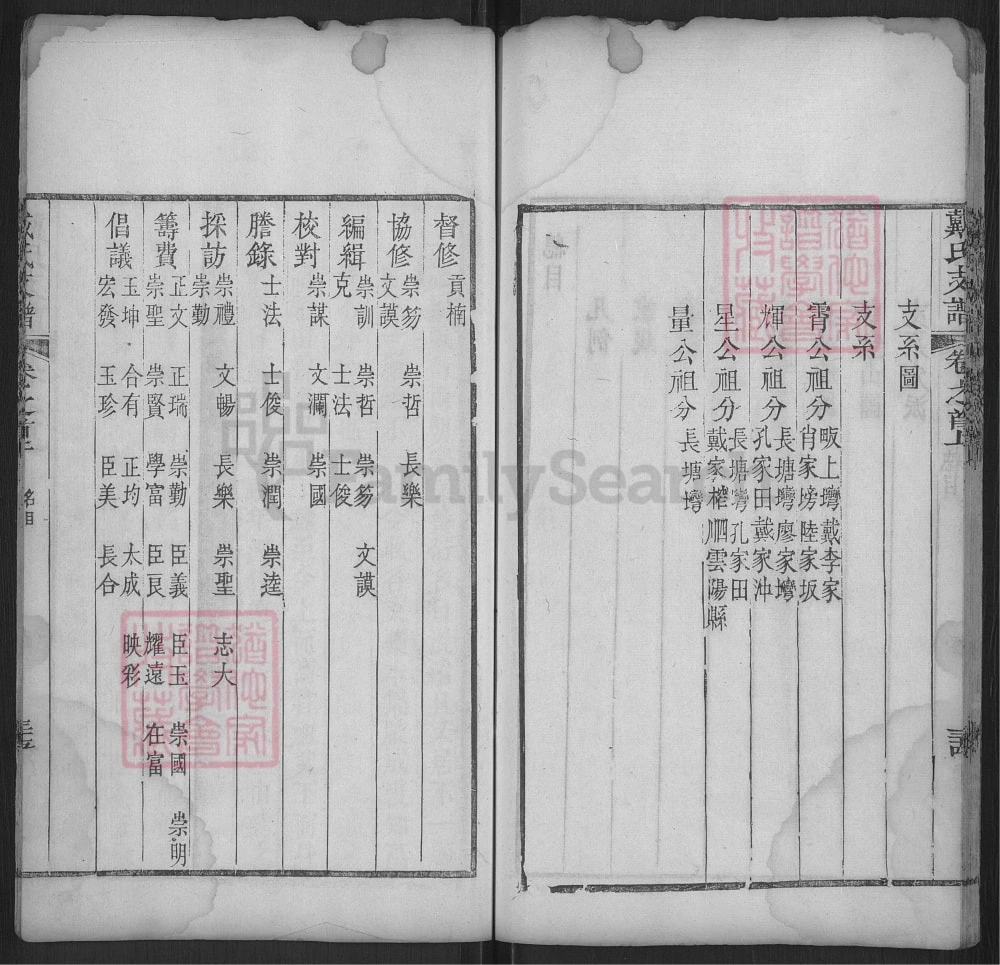 戴氏支譜
卷之首上
支系圖
支系
霄公祖分 畈上塆戴李家
肖家塝陸家坂
輝公祖分 長塘塆廖家塆
孔家田戴家冲
星公祖分 長塘塆孔家田
戴家榨
雲陽縣
量公祖分 長塘塆
督修 貢楠
協修 崇笏 崇哲 長樂
文謨
編緝 崇訓 崇哲 崇笏 文謨
克 士法 士俊
校對 崇謀 文瀾 崇國
謄錄 士法 士俊 崇潤 崇逵
採訪 崇禮 文暢 長樂 崇聖 志大
崇勤
籌費 正文 正瑞 崇勤 臣義 臣玉 崇國 崇明
崇聖 崇賢 學富 臣良 耀遠 在富
倡議 玉坤 合有 正均 太成 映彩
宏發 玉珍 臣美 長合
FamilySearch